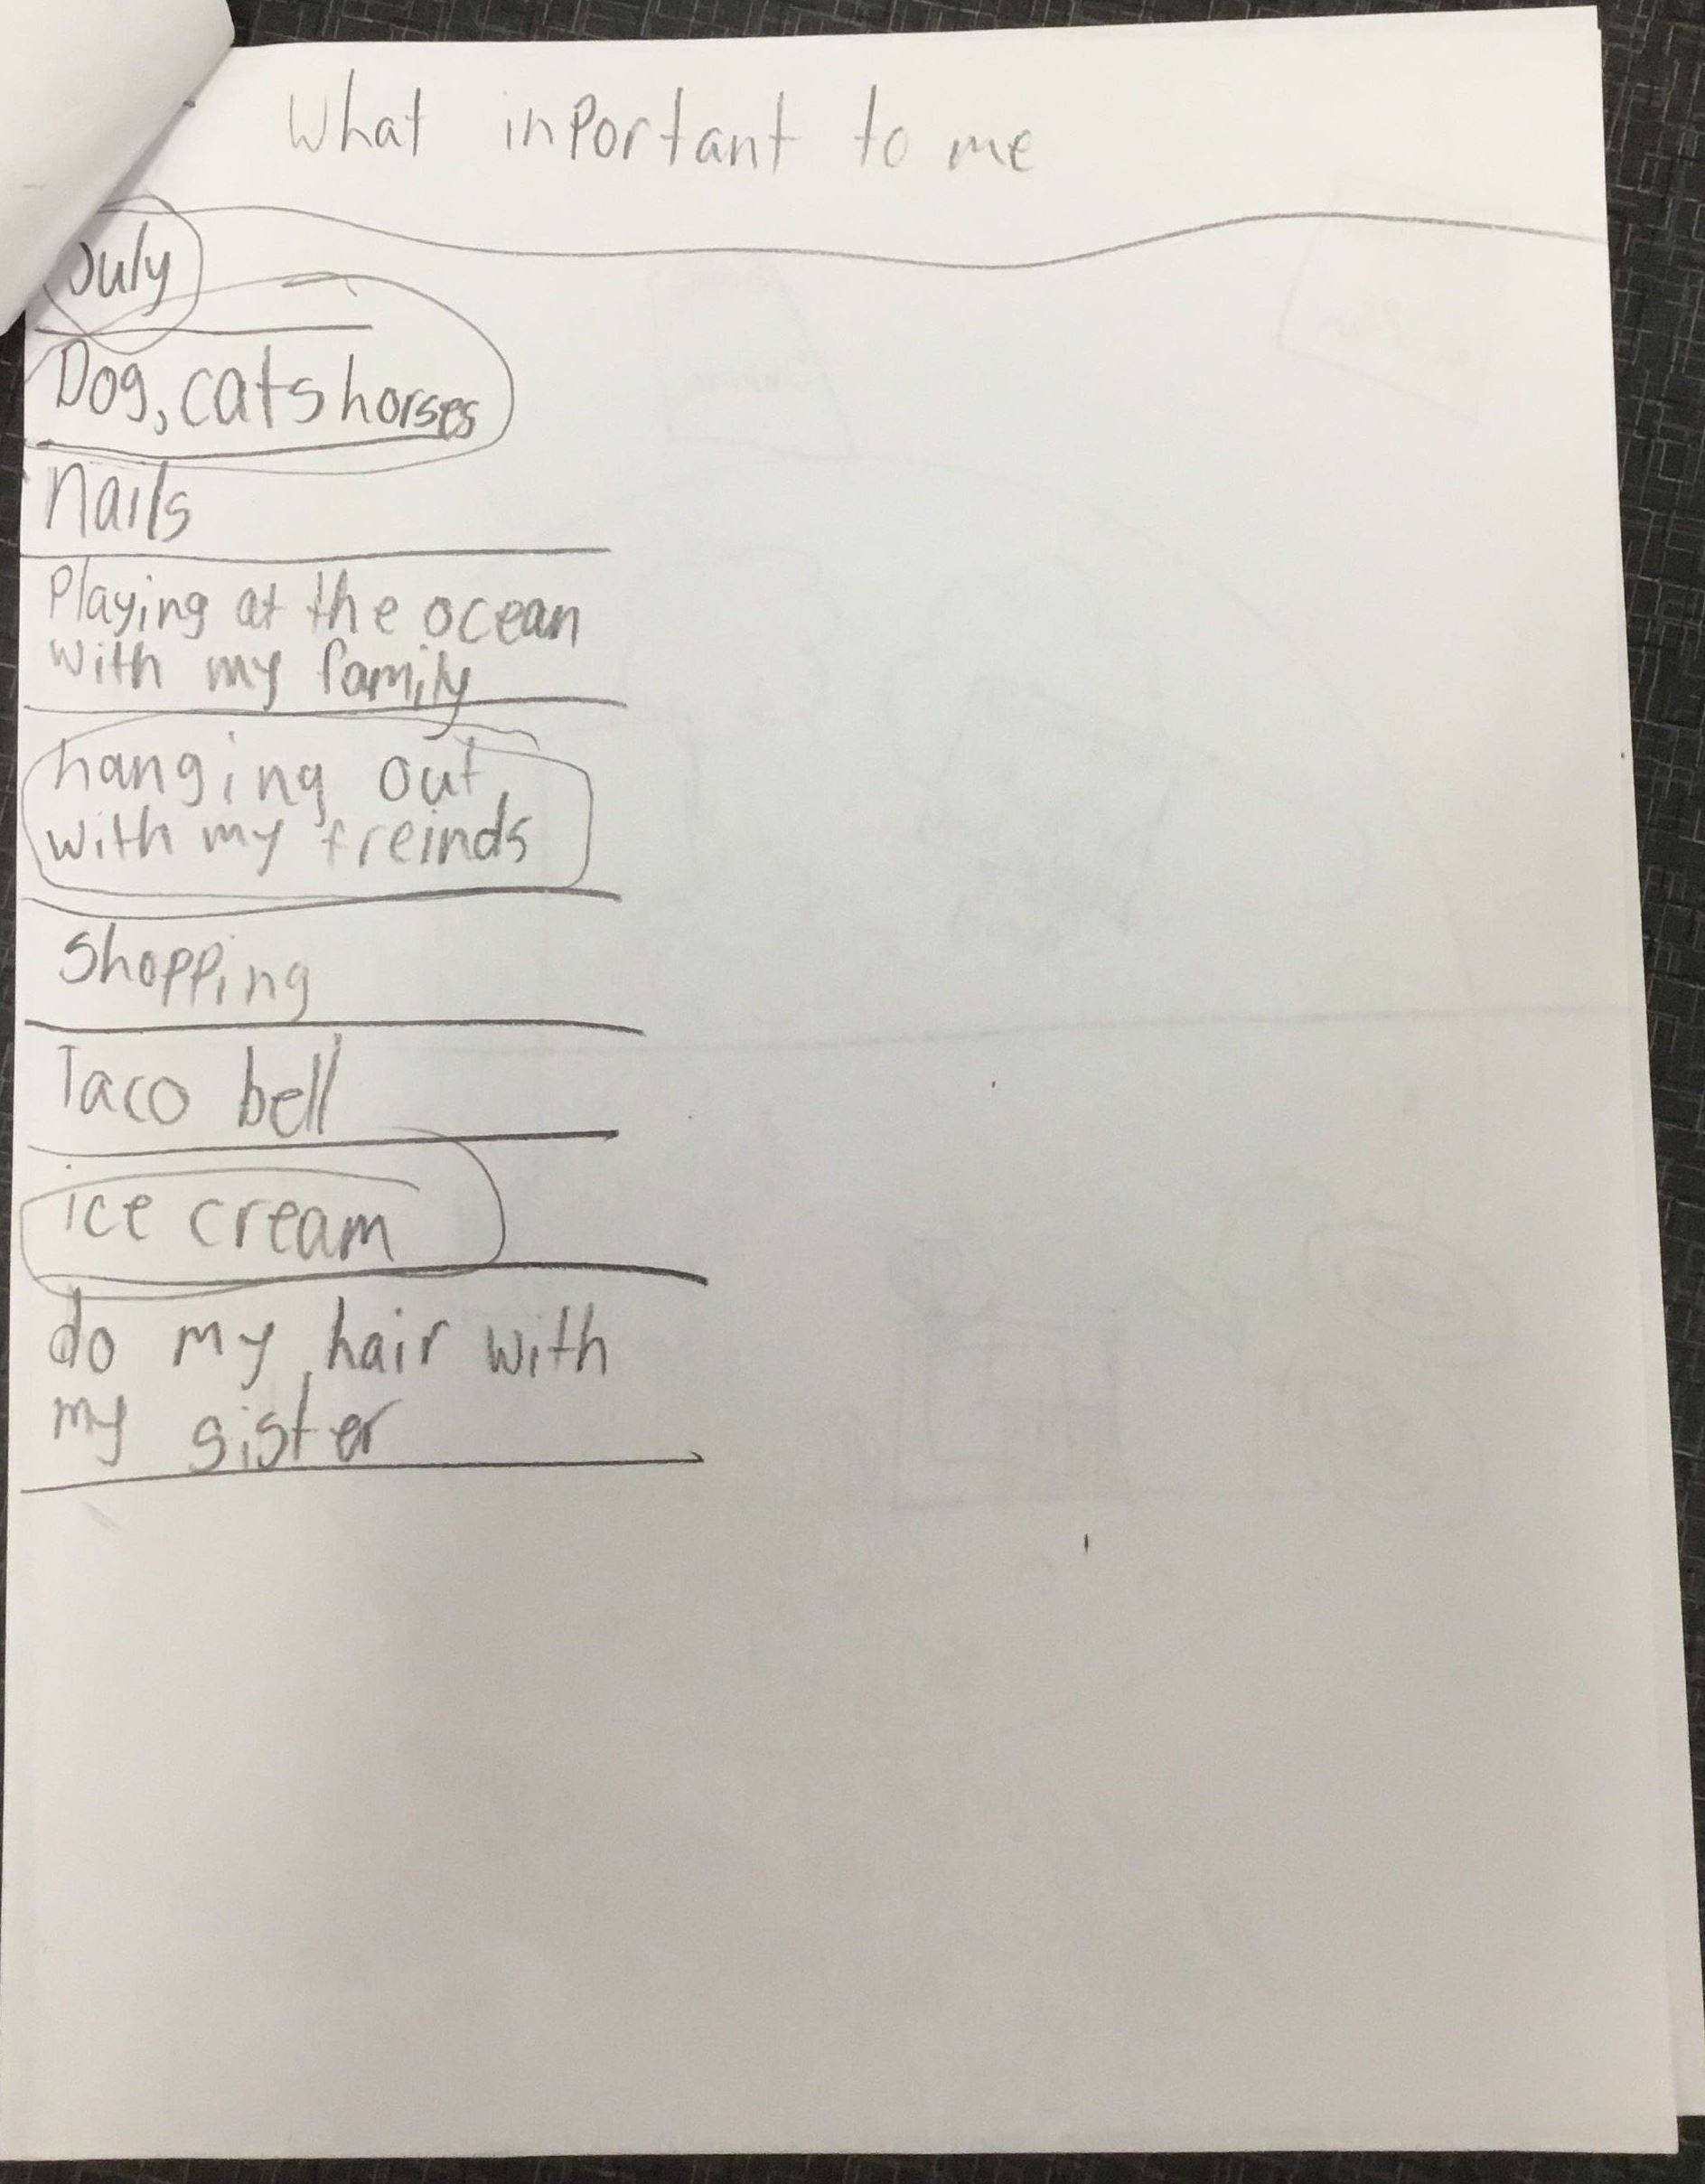 What inportant to me
July
Dog, cats horses
Nails
Playing at the ocean
with my family
hanging out
with my freinds
Shopping
Taco bell
ice cream
do my hair with
my sister